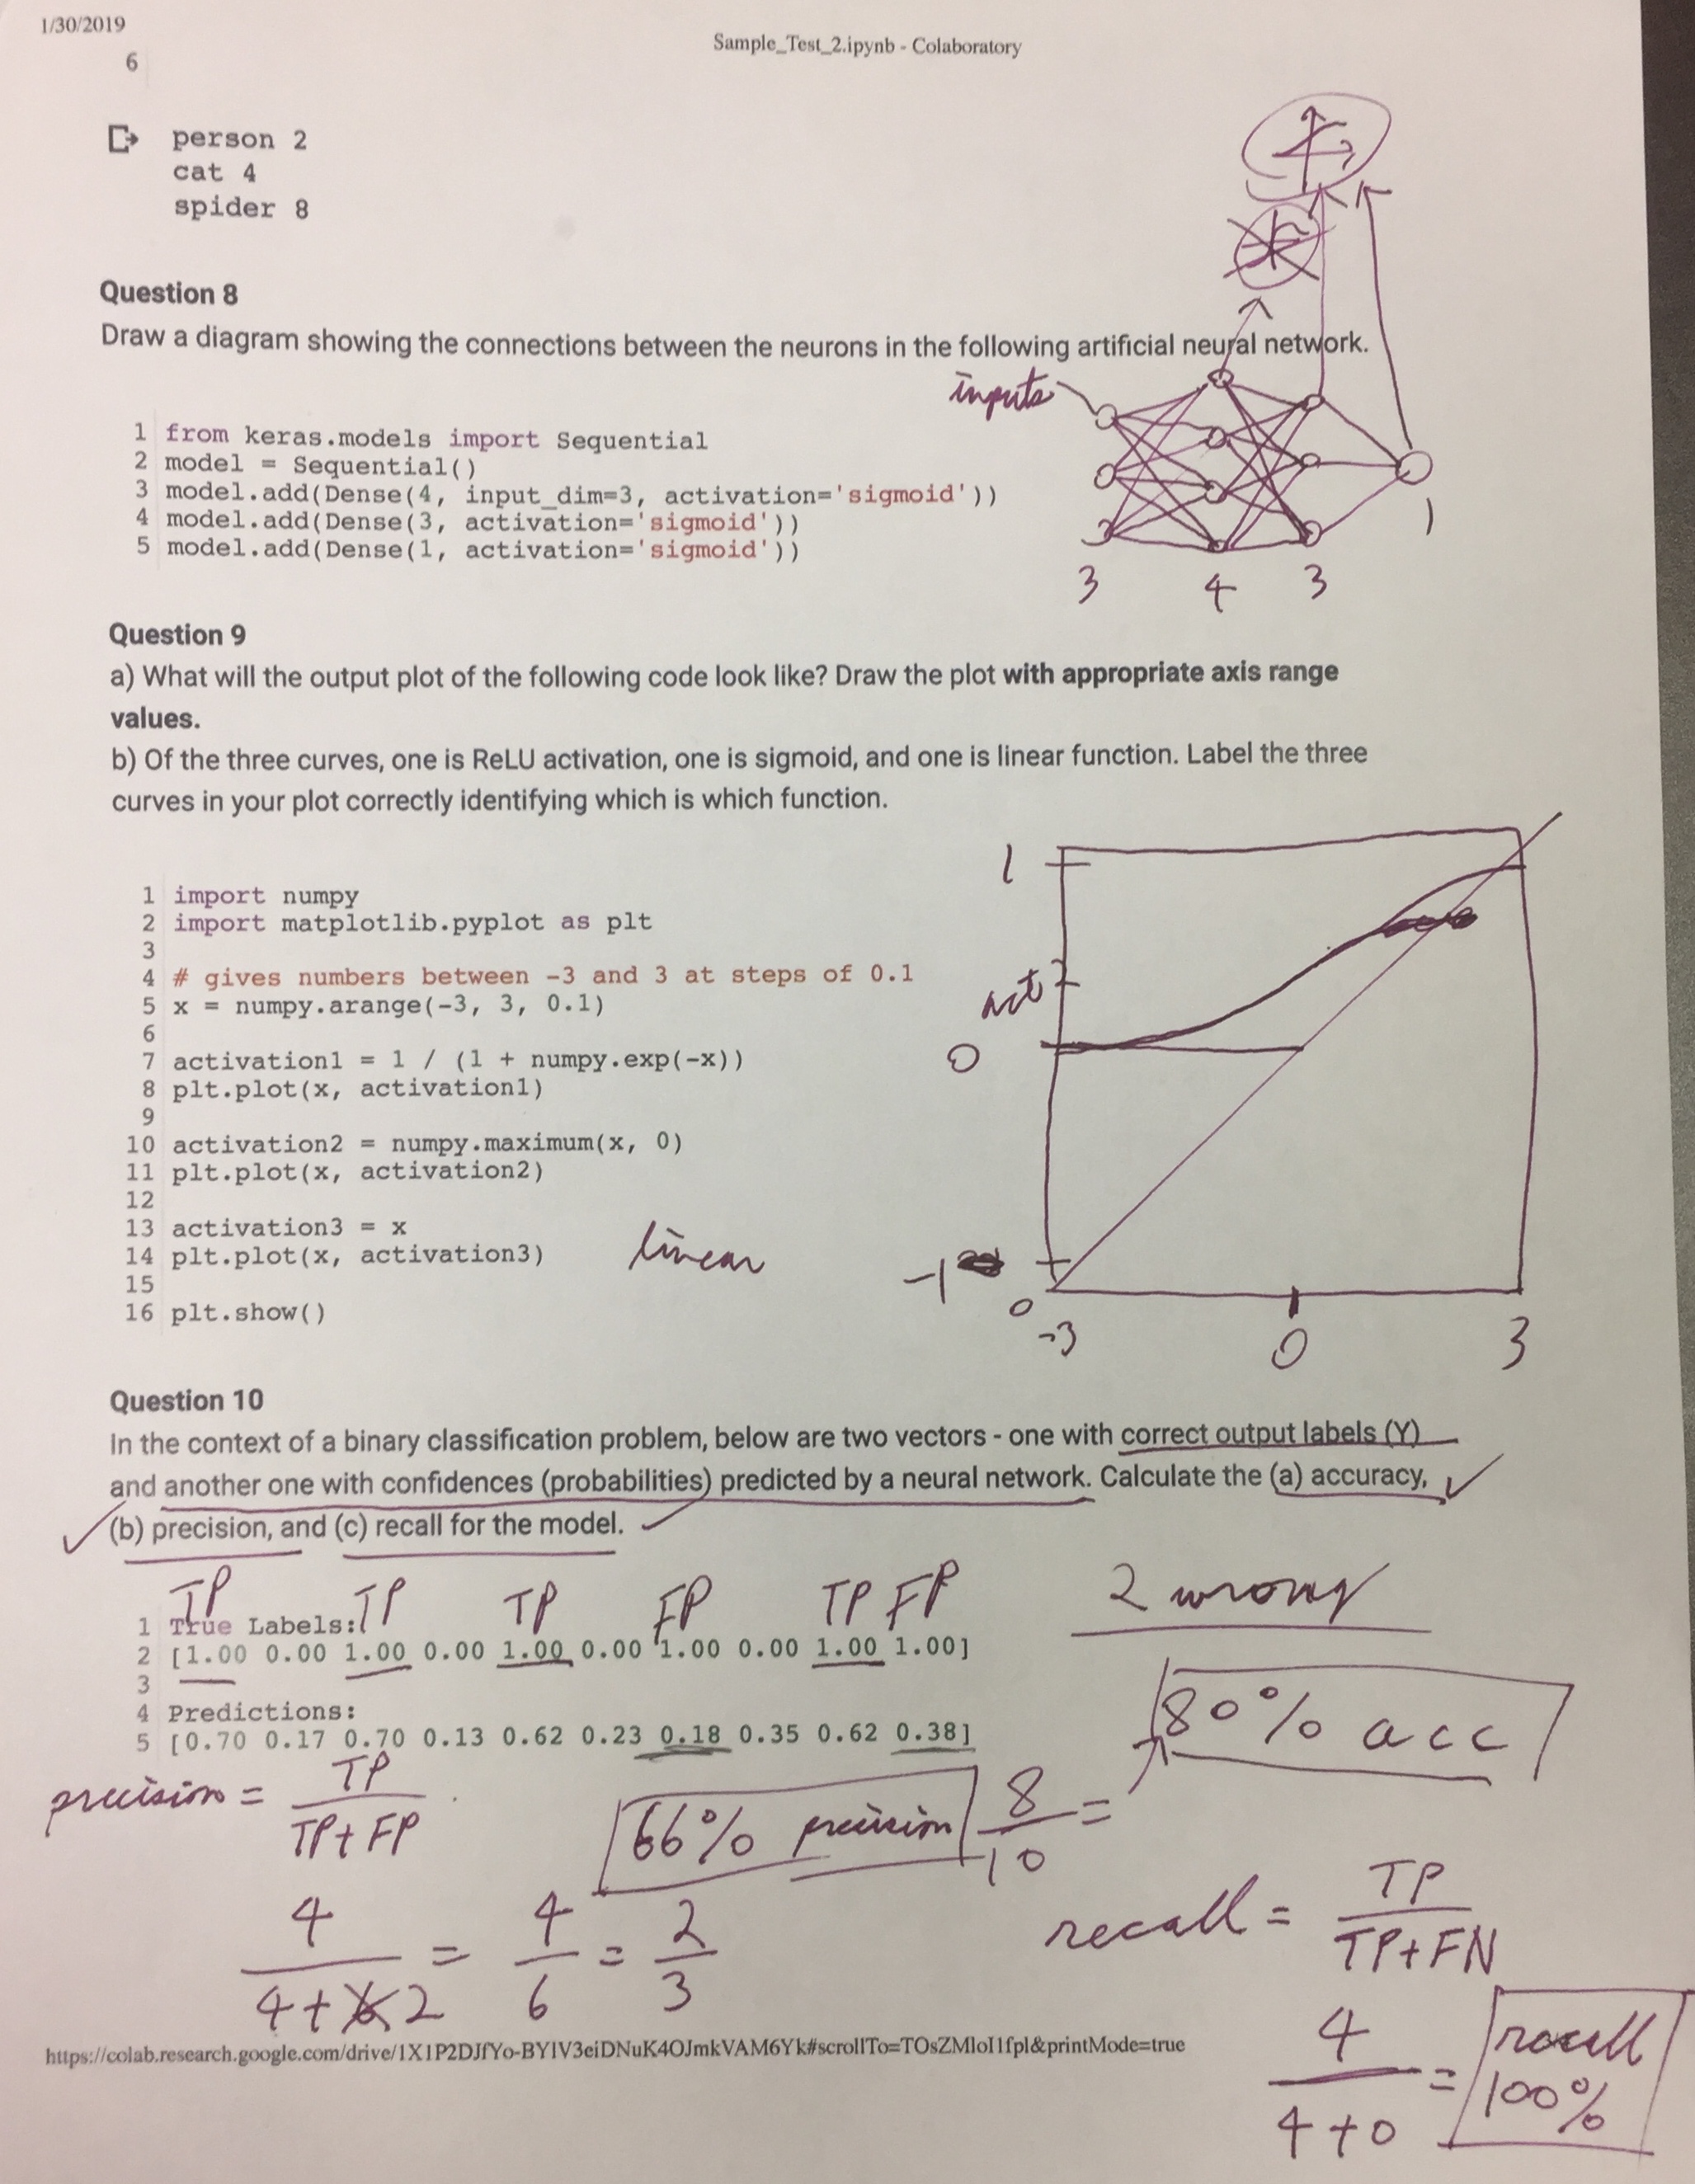 1/30/2019
Sample_Test_2.ipynb - Colaboratory
6
person 2
cat 4
spider 8
Question 8
Draw a diagram showing the connections between the neurons in the following artificial neural network.
inputs
1 from keras.models import Sequential
2 model = Sequential()
3 model.add(Dense(4, input_dim=3, activation='sigmoid'))
4 model.add(Dense(3, activation='sigmoid'))
5 model.add(Dense(1, activation='sigmoid'))
3 4 3 1
Question 9
a) What will the output plot of the following code look like? Draw the plot with appropriate axis range
values.
b) Of the three curves, one is ReLU activation, one is sigmoid, and one is linear function. Label the three
curves in your plot correctly identifying which is which function.
1 import numpy
2 import matplotlib.pyplot as plt
3
4 # gives numbers between -3 and 3 at steps of 0.1
5 x = numpy.arange(-3, 3, 0.1)
6
7 activation1 = 1 / (1 + numpy.exp(-x))
8 plt.plot(x, activation1)
9
10 activation2 = numpy.maximum(x, 0)
11 plt.plot(x, activation2)
12
13 activation3 = x
14 plt.plot(x, activation3) linear
15
16 plt.show()
1
act
0
-1
0
-3 0 3
Question 10
In the context of a binary classification problem, below are two vectors - one with correct output labels (Y)
and another one with confidences (probabilities) predicted by a neural network. Calculate the (a) accuracy,
(b) precision, and (c) recall for the model.
TP TP TP FP TP FP
2 wrong
1 True Labels:
2 [1.00 0.00 1.00 0.00 1.00 0.00 1.00 0.00 1.00 1.00]
3
4 Predictions:
5 [0.70 0.17 0.70 0.13 0.62 0.23 0.18 0.35 0.62 0.38]
80% acc
8/10 =
precision = TP/TP+FP
66% precision
4/4+2 = 4/6 = 2/3
recall = TP/TP+FN
4/4+0 = recall 100%
https://colab.research.google.com/drive/1X1P2DJfYo-BYIV3eiDNuK4OJmkVAM6Yk#scrollTo=TOsZMloI1fpl&printMode=true